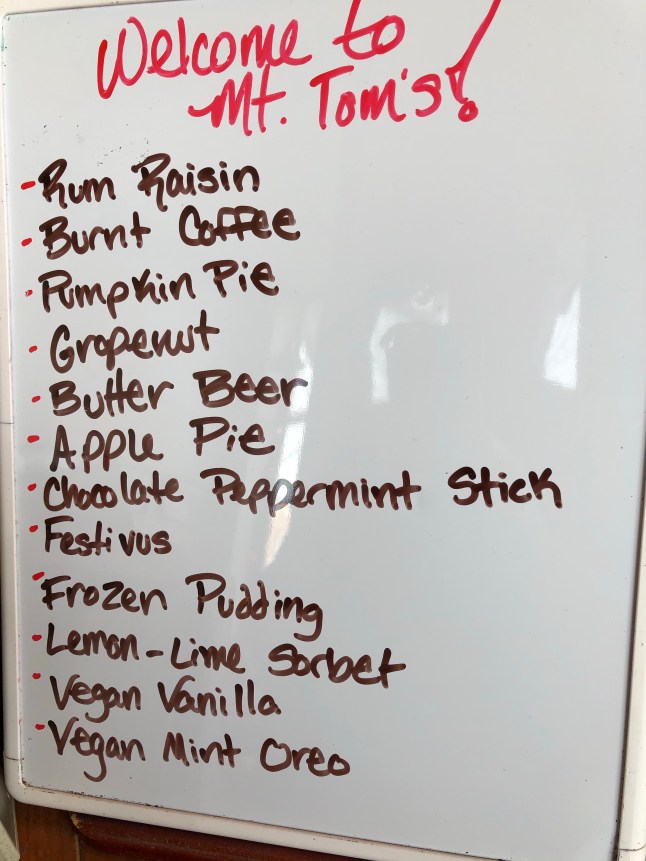 Welcome to
Mt. Tom's!
- Rum Raisin
• Burnt Coffee
• Pumpkin Pie
• Grapenut
• Butter Beer
• Apple Pie
• Chocolate Peppermint Stick
• Festivus
• Frozen Pudding
• Lemon-Lime Sorbet
• Vegan Vanilla
• Vegan Mint Oreo